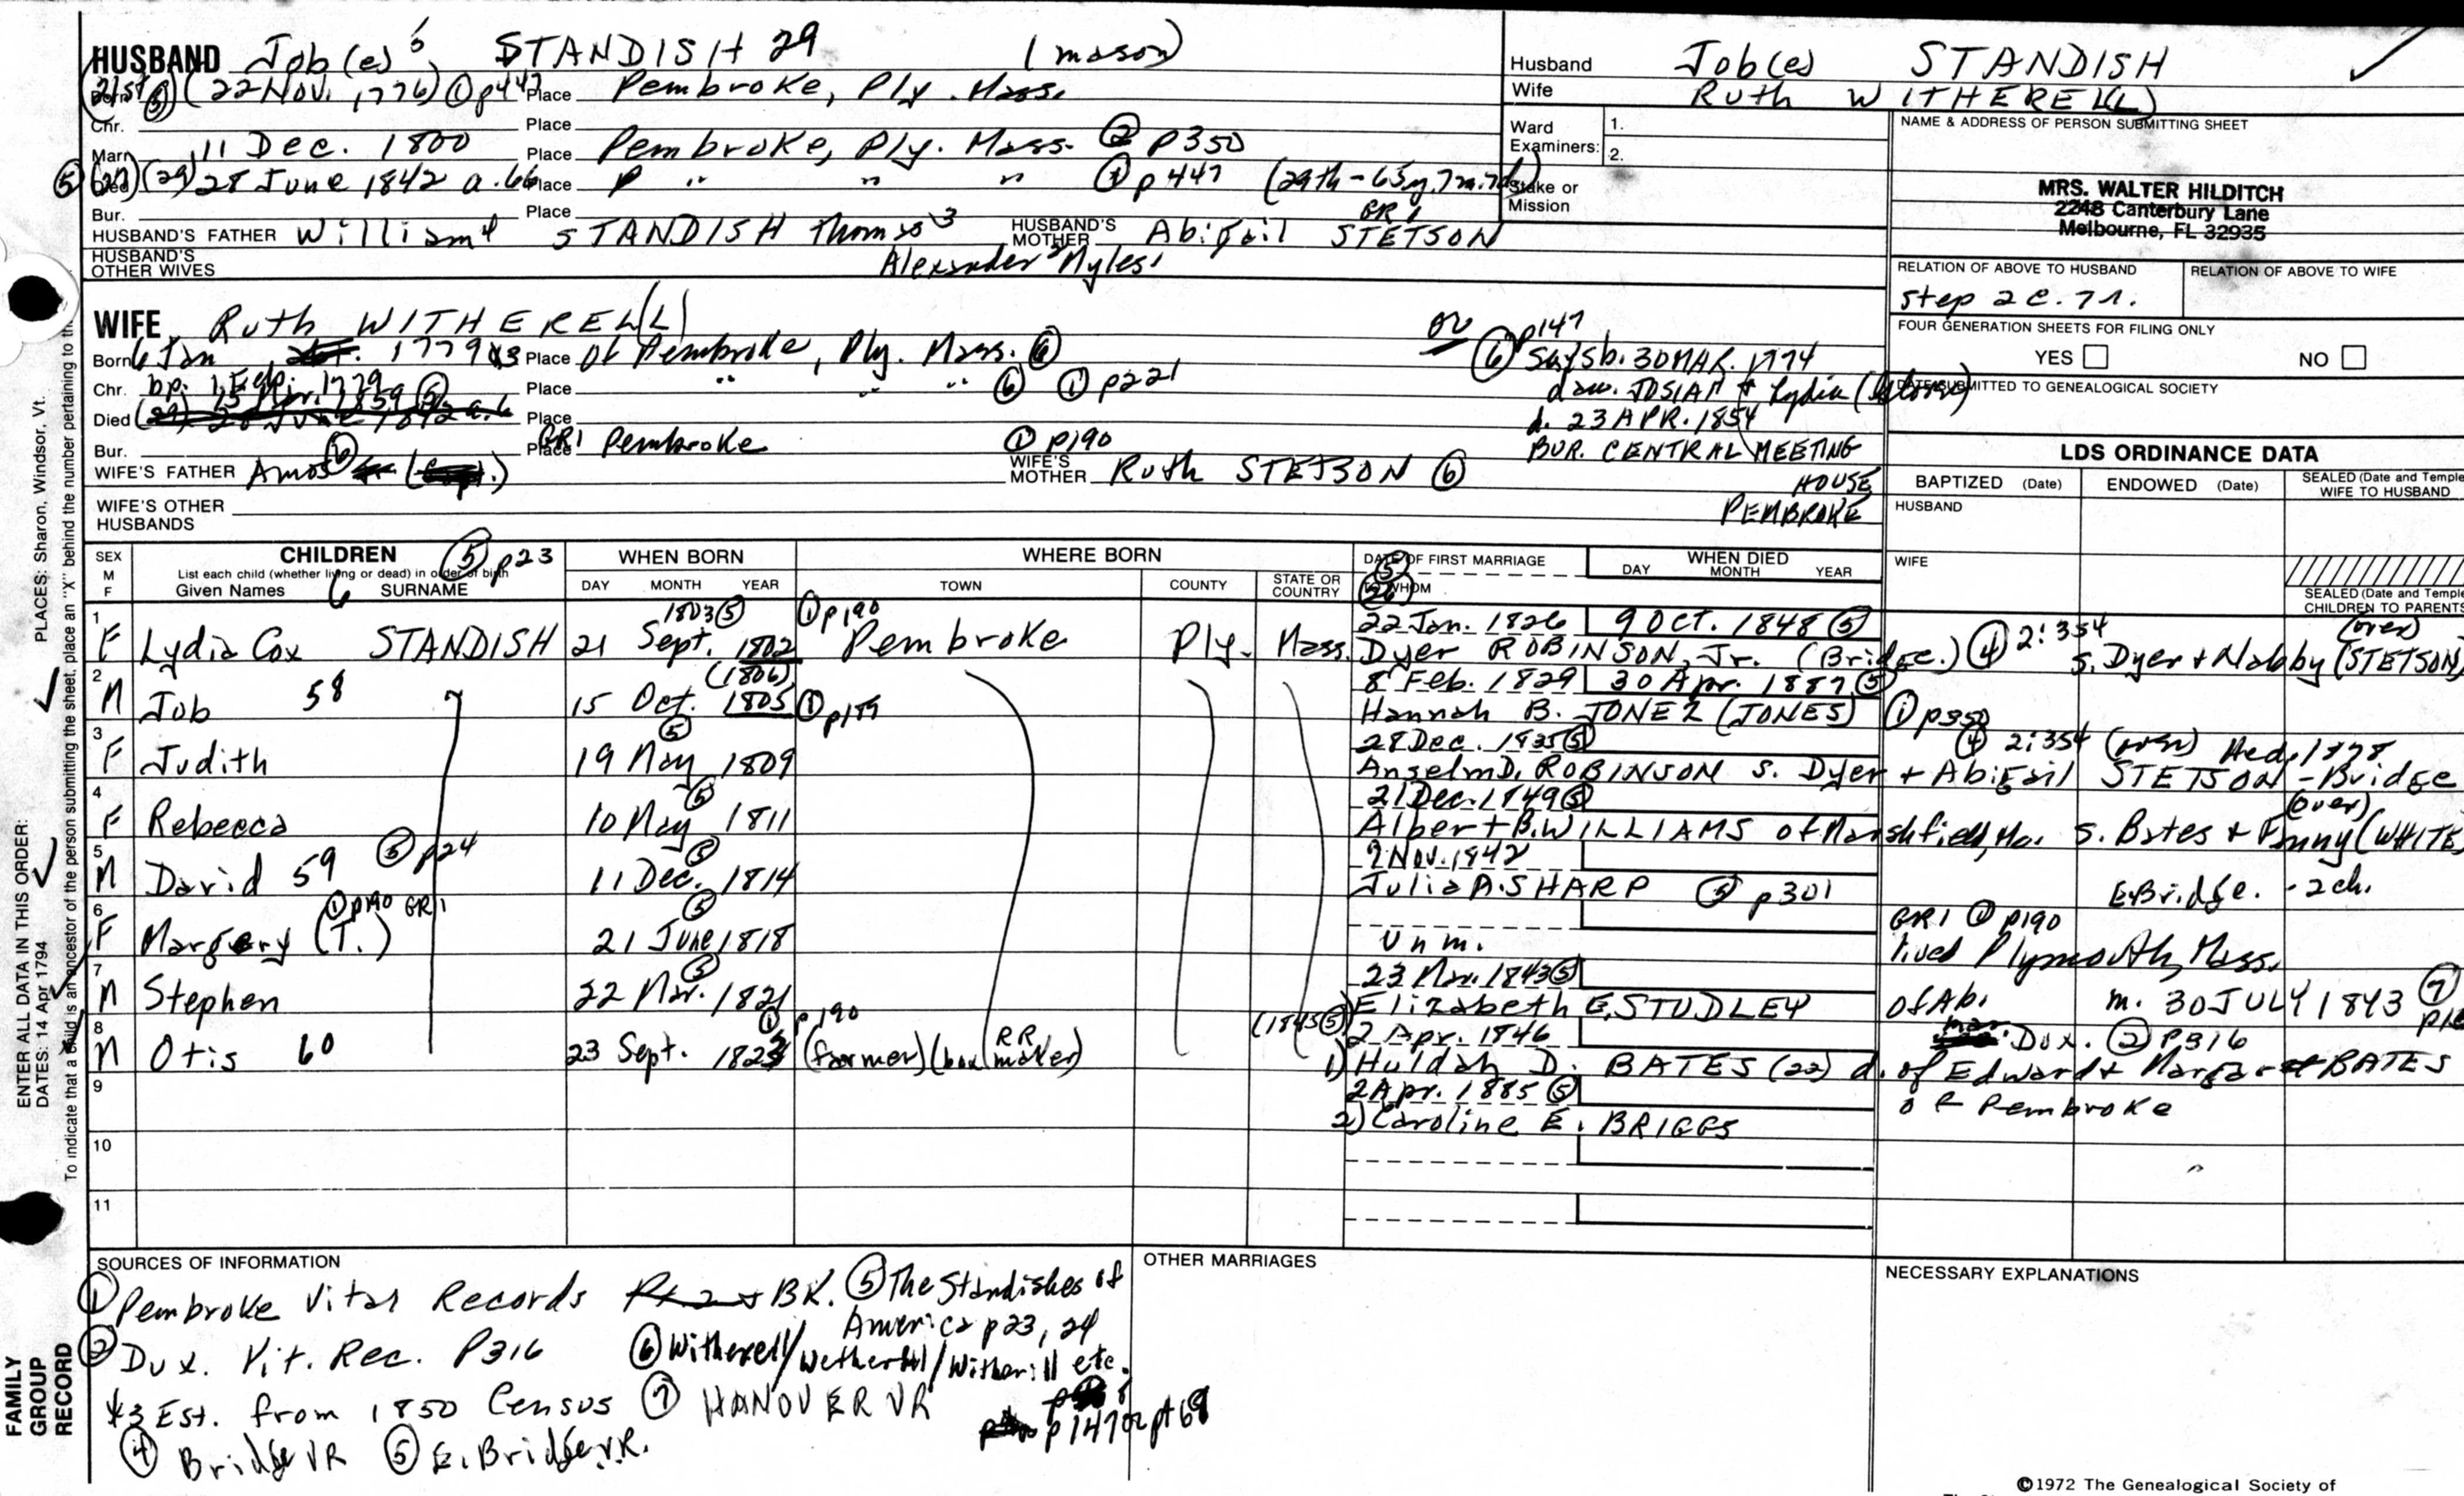 HUSBAND Job(es) 5 STANDISH 29 (mason)
Born (21st (5)) (22 Nov. 1776) (1) p447 Place Pembroke, Ply. Mass.
Chr. Place
Marr. 11 Dec. 1800 Place Pembroke, Ply. Mass. (2) p350
(5) Died (27) (29) 28 June 1842 a. 66 Place P " " " (1) p447 (29th - 65y, 7m, 7d)
Bur. Place GR1
HUSBAND'S FATHER William 4 STANDISH Thomas 3 HUSBAND'S MOTHER Abigail STETSON
HUSBAND'S OTHER WIVES Alexander 2 Myles 1
Husband Job(es) STANDISH
Wife Ruth WITHERELL(L)
Ward Examiners: 1.
2.
Stake or Mission
NAME & ADDRESS OF PERSON SUBMITTING SHEET
MRS. WALTER HILDITCH
2248 Canterbury Lane
Melbourne, FL 32935
RELATION OF ABOVE TO HUSBAND RELATION OF ABOVE TO WIFE
step 2c. 7r.
FOUR GENERATION SHEETS FOR FILING ONLY
YES NO
DATE SUBMITTED TO GENEALOGICAL SOCIETY
WIFE Ruth WITHERELL(L)
Born 6 Jan 1779 *3 Place of Pembroke, Ply. Mass. (6)
Chr. bp. 1779 Place " " " (6) (1) p221
Died 15 Apr. 1859 (5) Place
Bur. Place GR1 Pembroke (1) p190
WIFE'S FATHER Amos (6) WIFE'S MOTHER Ruth STETSON (6)
WIFE'S OTHER HUSBANDS
or (6) p147
says b. 30 MAR. 1774
dau. JOSIAH + Lydia
d. 23 APR. 1854
BUR. CENTRAL MEETING
HOUSE
PEMBROKE
LDS ORDINANCE DATA
BAPTIZED (Date) ENDOWED (Date) SEALED (Date and Temple) WIFE TO HUSBAND
HUSBAND
WIFE
SEALED (Date and Temple) CHILDREN TO PARENTS
SEX M F CHILDREN (5) p23 WHEN BORN WHERE BORN DATE OF FIRST MARRIAGE WHEN DIED
List each child (whether living or dead) in order of birth
Given Names 6 SURNAME DAY MONTH YEAR TOWN COUNTY STATE OR COUNTRY TO WHOM DAY MONTH YEAR
1 F Lydia Cox STANDISH 21 Sept. 1802 1803 (5) (1) p190 Pembroke Ply. Mass. 22 Jan. 1826 9 Oct. 1848 (5)
Dyer ROBINSON, Jr. (Bridge.) (4) 2:354 S. Dyer + Nabby (STETSON) (over)
2 M Job 58 15 Oct. 1805 (1806) (1) p189 8 Feb. 1829 30 Apr. 1887 (5)
Hannah B. JONEZ (JONES) (1) p350
3 F Judith 19 May 1809 (5) 28 Dec. 1835 (5)
(4) 2:354 (over)
Anselm D. ROBINSON S. Dyer + Abigail STETSON - Bridge
4 F Rebecca 10 May 1811 (5) 21 Dec. 1849 (5)
Albert B. WILLIAMS of Marshfield, Ma. S. Bates + Fanny (WHITE) (over)
5 M David 59 (5) p24 11 Dec. 1814 (5) 9 Nov. 1842
Julia A. SHARP (5) p301 E. Bridge. - 2 ch.
6 F Margery (T.) (1) p190 GR1 21 June 1818 (5)
Unm. GR1 (1) p190
lived Plymouth, Mass.
7 M Stephen 22 Mar. 1821 (5) 23 Mar. 1843 (5)
Elizabeth E. STUDLEY of Ab. m. 30 JULY 1843 (7)
8 M Otis 60 23 Sept. 1823 (1) p190 (farmer) (box maker) RR (1845 (5)) 2 Apr. 1846
Dux. (2) P316
1) Huldah D. BATES (22) d. of Edward + Margaret BATES
of Pembroke
2 Apr. 1885 (5)
2) Caroline E. BRIGGS
9
10
11
SOURCES OF INFORMATION
(1) Pembroke Vital Records BK. (5) The Standishes of
America p23, 24
(2) Dux. Vit. Rec. P316 (6) Witherell/Wetherell/Witherill etc.
*3 Est. from 1850 Census (7) HANOVER VR
p147
(4) Bridge VR (5) E. Bridge V.R.
OTHER MARRIAGES
NECESSARY EXPLANATIONS
©1972 The Genealogical Society of
ENTER ALL DATA IN THIS ORDER:
DATES: 14 Apr 1794
PLACES: Sharon, Windsor, Vt.
To indicate that a child is an ancestor of the person submitting the sheet, place an "X" behind the number pertaining to
FAMILY
GROUP
RECORD